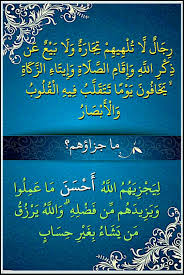 رِجَالٌ لَّا تُلْهِيهِمْ تِجَارَةٌ وَلَا بَيْعٌ عَن
ذِكْرِ اللَّهِ وَإِقَامِ الصَّلَاةِ وَإِيتَاءِ الزَّكَاةِ
يَخَافُونَ يَوْمًا تَتَقَلَّبُ فِيهِ الْقُلُوبُ
وَالْأَبْصَارُ
ما جزاؤهم؟
لِيَجْزِيَهُمُ اللَّهُ أَحْسَنَ مَا عَمِلُوا
وَيَزِيدَهُم مِّن فَضْلِهِ وَاللَّهُ يَرْزُقُ
مَن يَشَاءُ بِغَيْرِ حِسَابٍ